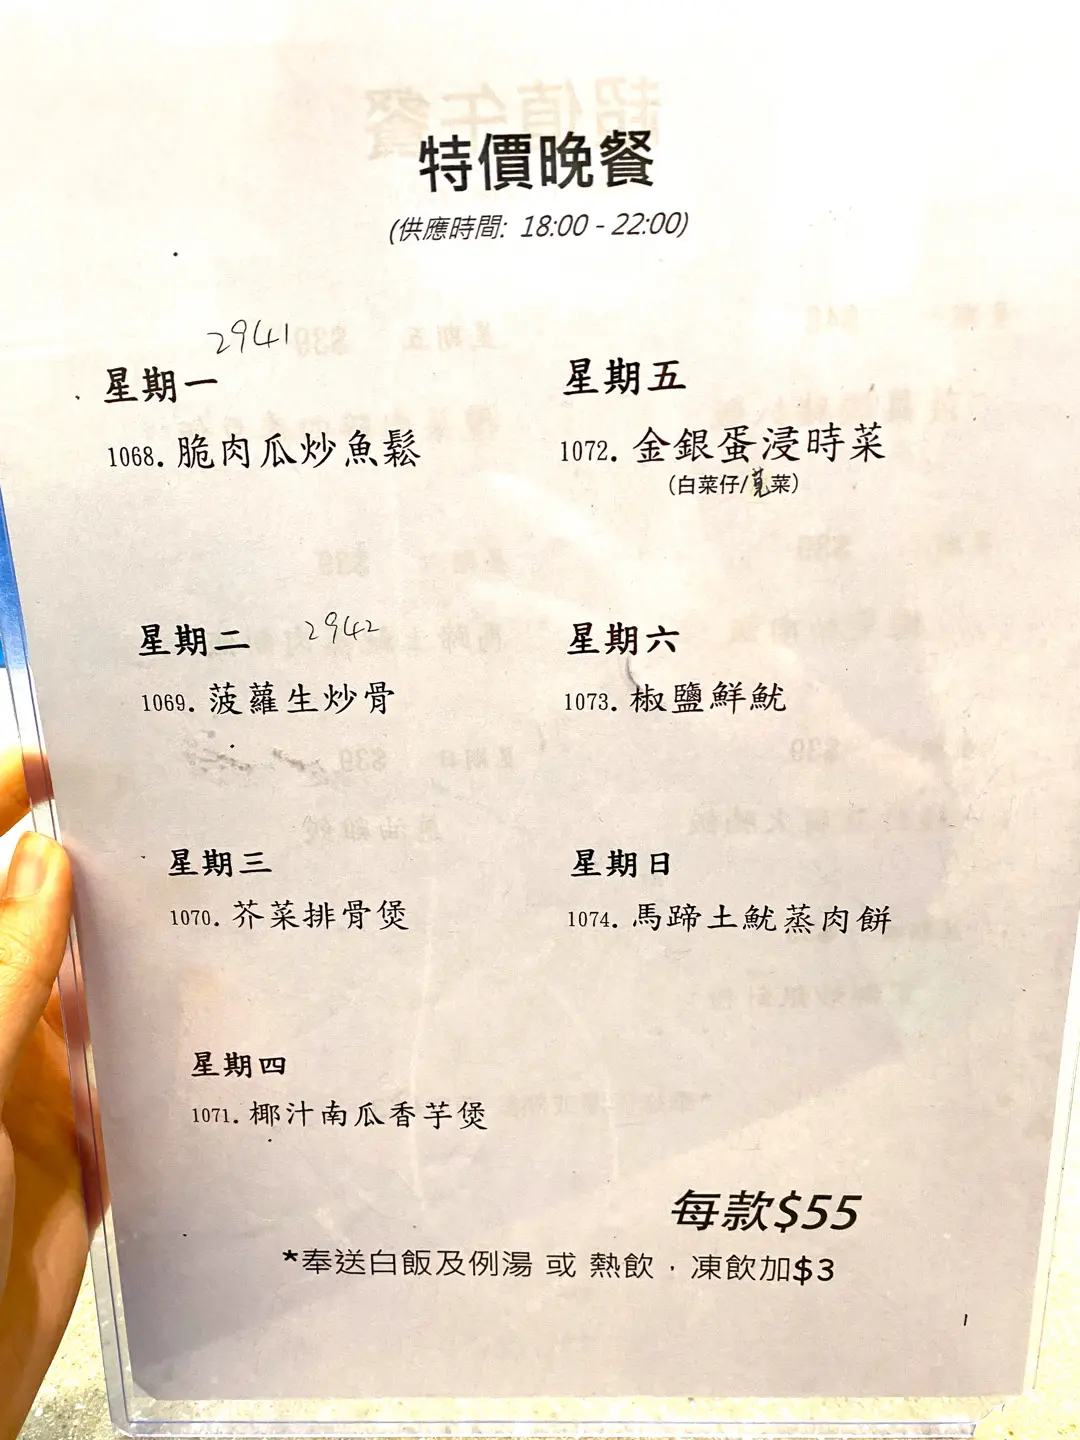 特價晚餐
(供應時間: 18:00 - 22:00)
2941
星期一
1068. 脆肉瓜炒魚鬆
星期二 2942
1069. 菠蘿生炒骨
星期三
1070. 芥菜排骨煲
星期四
1071. 椰汁南瓜香芋煲
星期五
1072. 金銀蛋浸時菜
(白菜仔/莧菜)
星期六
1073. 椒鹽鮮魷
星期日
1074. 馬蹄土魷蒸肉餅
每款$55
*奉送白飯及例湯 或 熱飲，凍飲加$3